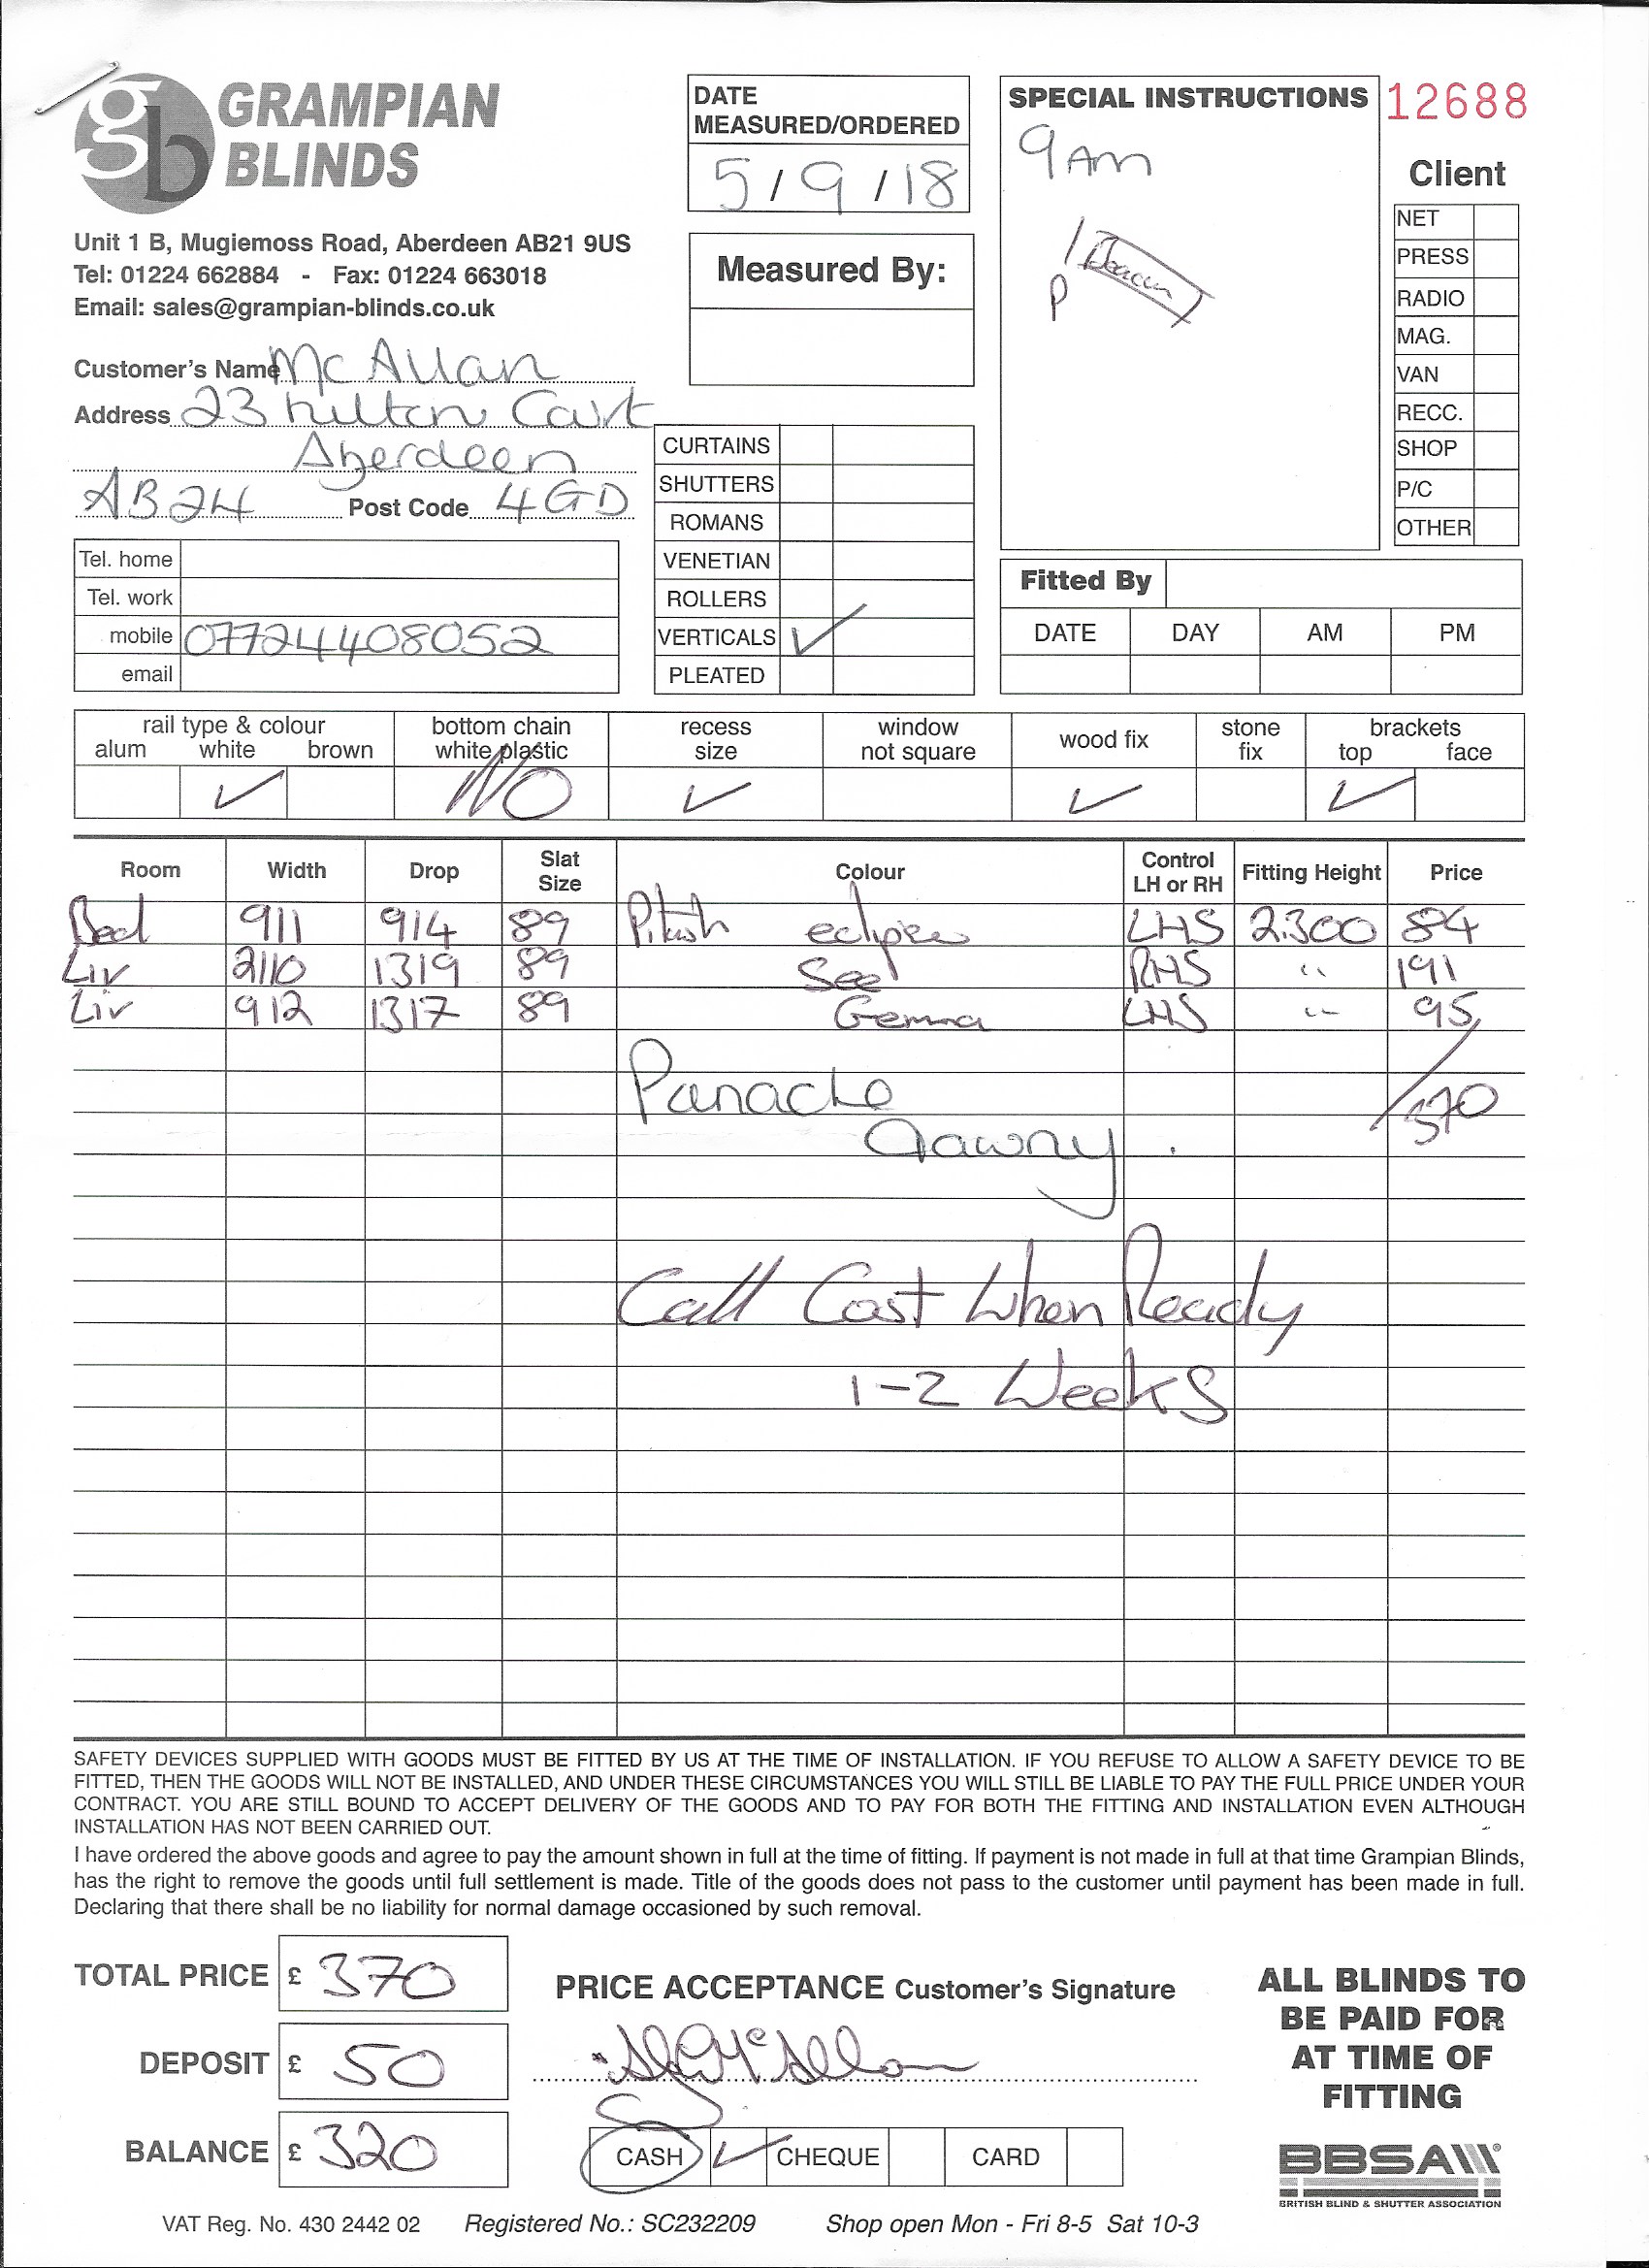 gb GRAMPIAN BLINDS
Unit 1 B, Mugiemoss Road, Aberdeen AB21 9US
Tel: 01224 662884 - Fax: 01224 663018
Email: sales@grampian-blinds.co.uk
DATE MEASURED/ORDERED
5/9/18
Measured By:
SPECIAL INSTRUCTIONS
9 Am
P
12688
Client
NET
PRESS
RADIO
MAG.
VAN
RECC.
SHOP
P/C
OTHER
Customer's Name McAllan
Address 23 Hilton Court
Aberdeen
AB24 Post Code 4GD
Tel. home
Tel. work
mobile 07724408052
email
CURTAINS
SHUTTERS
ROMANS
VENETIAN
ROLLERS
VERTICALS ✓
PLEATED
Fitted By
DATE DAY AM PM
rail type & colour bottom chain recess window wood fix stone brackets
alum white brown white plastic size not square fix top face
✓ NO ✓ ✓ ✓
Room Width Drop Slat Size Colour Control LH or RH Fitting Height Price
Bed 911 914 89 eclipse LHS 2.300 84
Liv 2110 1319 89 See RHS " 191
Liv 912 1317 89 Gemma LHS " 95
Panache
370
Tawny
Call Cost When Ready
1-2 Weeks
SAFETY DEVICES SUPPLIED WITH GOODS MUST BE FITTED BY US AT THE TIME OF INSTALLATION. IF YOU REFUSE TO ALLOW A SAFETY DEVICE TO BE
FITTED, THEN THE GOODS WILL NOT BE INSTALLED, AND UNDER THESE CIRCUMSTANCES YOU WILL STILL BE LIABLE TO PAY THE FULL PRICE UNDER YOUR
CONTRACT. YOU ARE STILL BOUND TO ACCEPT DELIVERY OF THE GOODS AND TO PAY FOR BOTH THE FITTING AND INSTALLATION EVEN ALTHOUGH
INSTALLATION HAS NOT BEEN CARRIED OUT.
I have ordered the above goods and agree to pay the amount shown in full at the time of fitting. If payment is not made in full at that time Grampian Blinds,
has the right to remove the goods until full settlement is made. Title of the goods does not pass to the customer until payment has been made in full.
Declaring that there shall be no liability for normal damage occasioned by such removal.
TOTAL PRICE £ 370
DEPOSIT £ 50
BALANCE £ 320
PRICE ACCEPTANCE Customer's Signature
McAllan
CASH ✓ CHEQUE CARD
ALL BLINDS TO
BE PAID FOR
AT TIME OF
FITTING
BBSA
BRITISH BLIND & SHUTTER ASSOCIATION
VAT Reg. No. 430 2442 02 Registered No.: SC232209 Shop open Mon - Fri 8-5 Sat 10-3